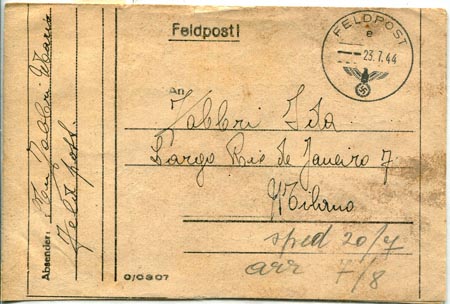 Feldpost!
FELDPOST
e
23.7.44
An
Fabbri Ida
Largo Rio de Janeiro 7
Milano
sped 20/7
arr 7/8
Absender: Fabbri Maria
Feldpost.
0/0807